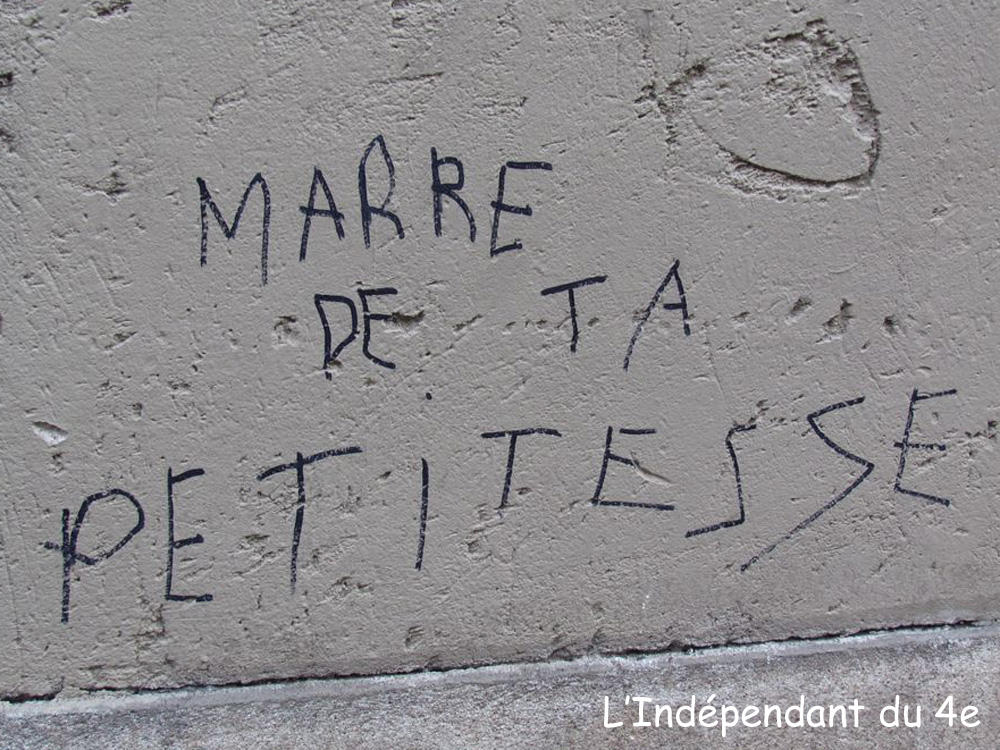 MARRE
DE TA
PETITESSE
L'Indépendant du 4e